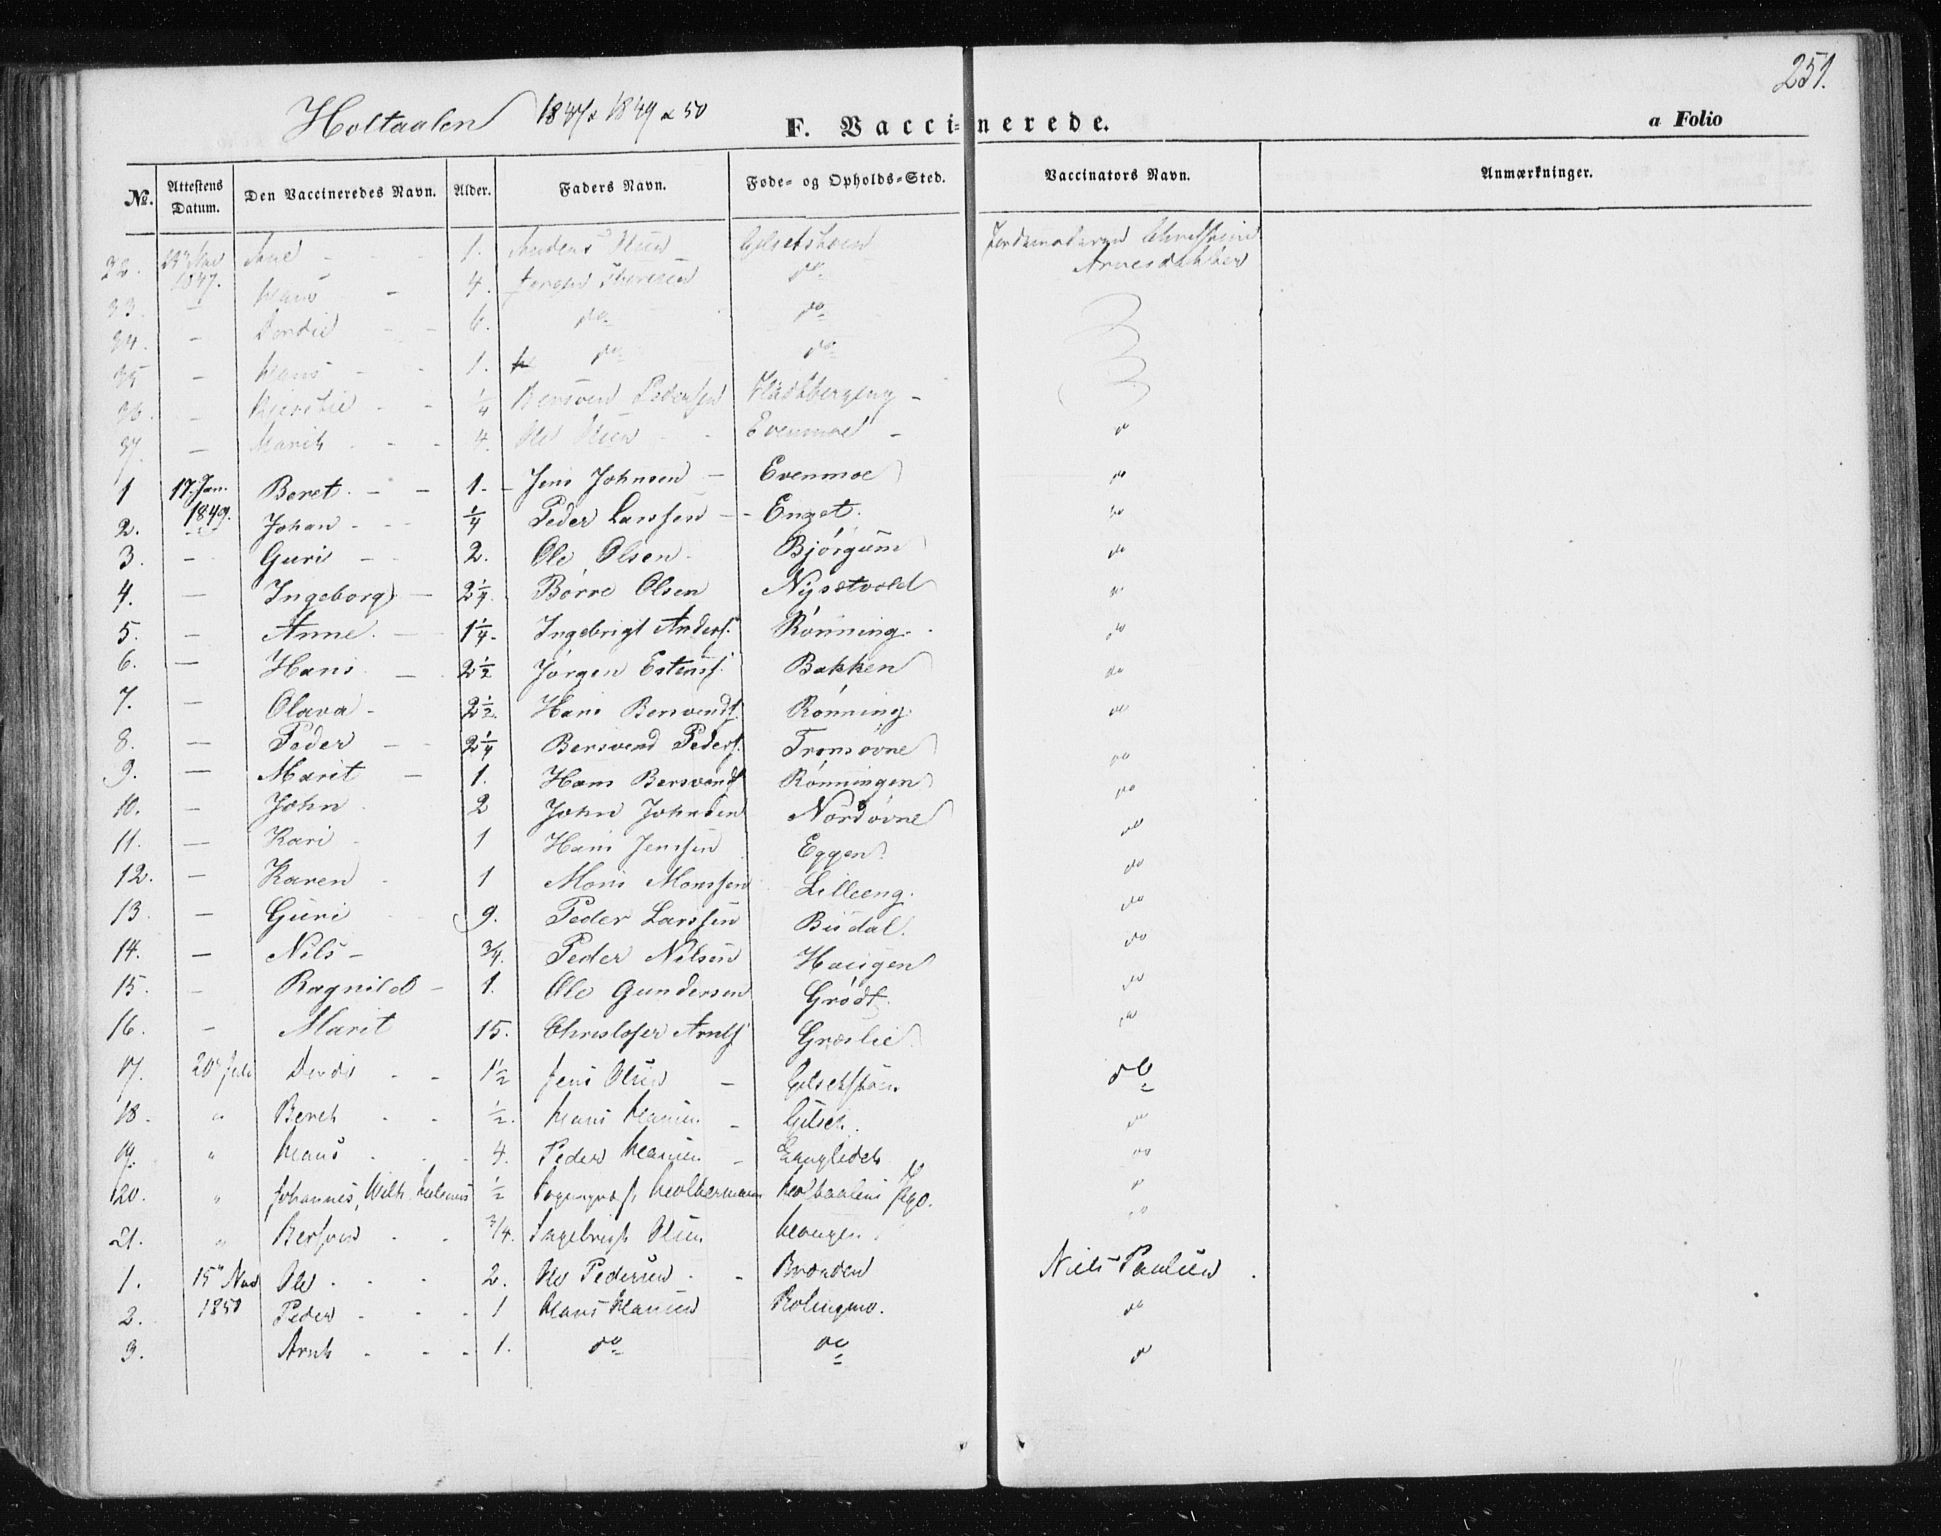 251.
Holtaalen 1847 & 1849 & 50
F. Vaccinerede. a Folio
№. Attestens Datum. Den Vaccineredes Navn. Alder. Faders Navn. Føde- og Opholds-Sted. Vaccinators Navn. Anmærkninger.
32. 1847. Ane - - 1. Anders Olsen
33. - Hans - 4. do
34. - Dordie - - 6. do do
35 - Hans - - 1. do do
36. - Kjerstie - - 1/4 Bersven Pedersen
37. - Marith - - 4. Ole Olsen - - Evenmoe - do
1 17. Jan. 1849. Beret. - - 1. - Jens Johnsen - Evenmoe do
2. - Johan - - - 1/4 Peder Larssen - - Enget. do
3. - Guri - - 2. Ole Olsen - Bjørgum do
4. - Ingeborg - 2 1/4. Børre Olsen Nysetvold do
5. - Anne. - - 1 1/4. Ingebrigt Anders. Rønning. do
6. - Hans - - 2 1/2 Jørgen Estens. Bakken do
7. - Olava - 2 1/2. Hans Bersvends. Rønning do
8. - Peder - - 2 1/4 Bersvend Peders. Tronsøvne do
9. - Marit - 1. Hans Bersvends Rønningen do
10. - John - 2 John Johnsen Nordøvne do
11. - Kari - 1 Hans Jenssen Eggen. do
12. - Karen - 1 Mons Monssen Lilleeng. do
13. - Guri - 9. Peder Larssen Busdal. do
14. - Nils - 3/4. Peder Nilsen Haugen do
15. - Ragnild - 1. Ole Gundersen Grødt. do
16. - Marit 15. Christofer Arnts Græslie do
17. 20 Juli - - 1 1/2 Jens Olsen - do
18. " Bereth - - 1/2. Hans Hansen - Gilset. do
19. " Hans - - 4. Peder Hansen - do
20. " Johannes, Wilh. 1/2 do
21. " Bersven - - 3/4. Ingebrigt Olsen Haugen. do
1. 15 1850 Ole - - - 2. Ole Pedersen - - Brænden Niels Paulsen.
2. Peder - - - 1 Hans Hansen do
3. Arnt - - - 1. do do do